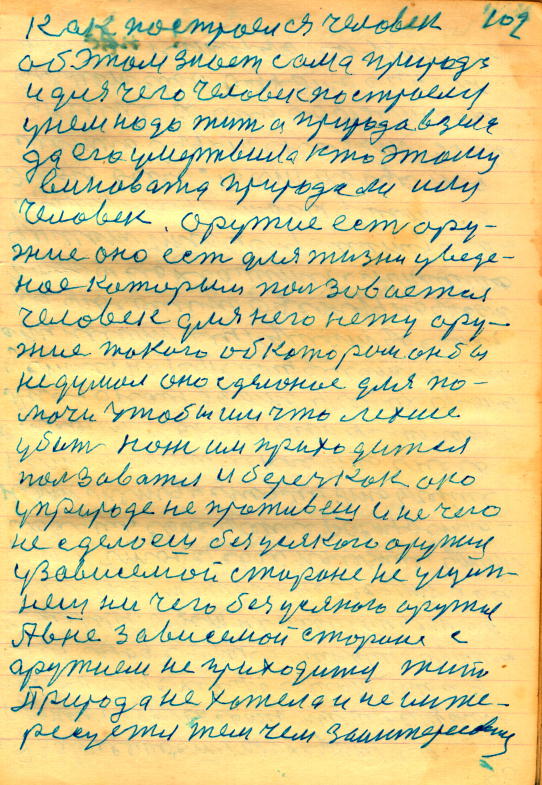 109
Как построелся человек
обэтом знает сама природа
и для чего человек построелся
унем надо жит а природа взяла
да его умертвила кто этому
виновата природа ли или
человек. оружие ест ору-
жие оно ест для жизни уведе-
ное которым ползовается
человек для него нету ору-
жие такого об котором он бы
не думал оно сделоное для по-
мочи чтобы им что лехше
убит нож им приходится
ползоватся и береч как око
уприроде не противеш и не чего
не сделоеш без усякого оружия
узависемой стороне не
неш ни чего без усякого оружия
Авне зависемой стороне с
аружием не приходится жить
Природа не хотела и не инте-
ресуется тем чем